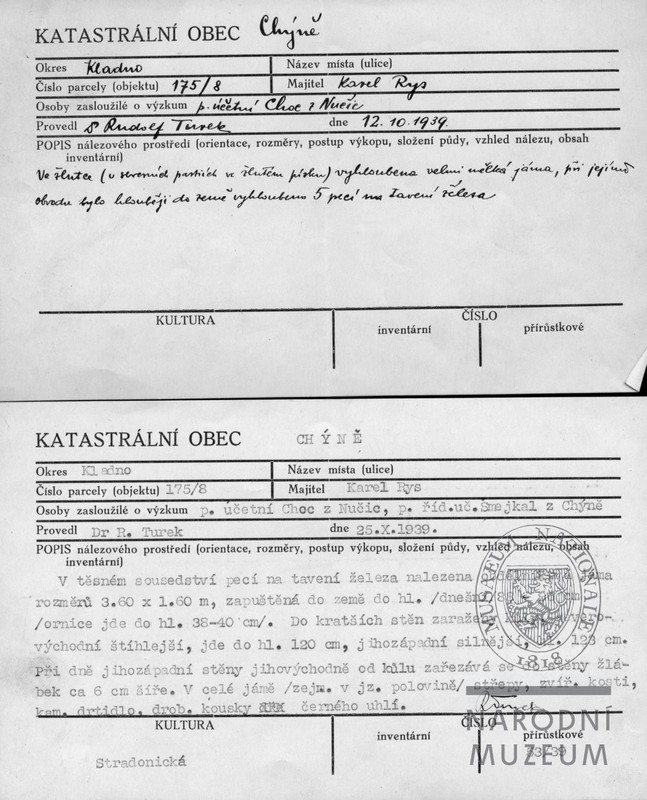 KATASTRÁLNÍ OBEC Chýně
Okres Kladno Název místa (ulice)
Číslo parcely (objektu) 175/8 Majitel Karel Rys
Osoby zasloužilé o výzkum p. účetní Choc z Nučic
Provedl Dr Rudolf Turek dne 12.10.1939.
POPIS nálezového prostředí (orientace, rozměry, postup výkopu, složení půdy, vzhled nálezu, obsah
inventární)
Ve žlutce (v severních partiích ve žlutém písku) vyhloubena velmi mělká jáma, při jejímž
obvodu bylo hlouběji do země vyhloubeno 5 pecí na tavení železa
KULTURA
ČÍSLO
inventární přírůstkové
KATASTRÁLNÍ OBEC CHÝNĚ
Okres Kladno Název místa (ulice)
Číslo parcely (objektu) 175/8 Majitel Karel Rys
Osoby zasloužilé o výzkum p. účetní Choc z Nučic, p. říd.uč.Smejkal z Chýně
Provedl Dr R. Turek dne 25.X.1939.
POPIS nálezového prostředí (orientace, rozměry, postup výkopu, složení půdy, vzhled nálezu, obsah
inventární)
V těsném sousedství pecí na tavení železa nalezena jáma
rozměrů 3.60 x 1.60 m, zapuštěná do země do hl. /dnešní
/ornice jde do hl. 38-40 cm/. Do kratších stěn zaraženy
východní štíhlejší, jde do hl. 120 cm, jihozápadní silnější, 123 cm.
Při dně jihozápadní stěny jihovýchodně od kůlu zařezává se do stěny žlá-
bek ca 6 cm šíře. V celé jámě /zejm. v jz. polovině/ střepy, zvíř. kosti,
kam. drtidlo, drob. kousky černého uhlí.
KULTURA
ČÍSLO
inventární přírůstkové
Stradonická
33/39
MUSEUM NATIONALE
1818
NÁRODNÍ
MUZEUM